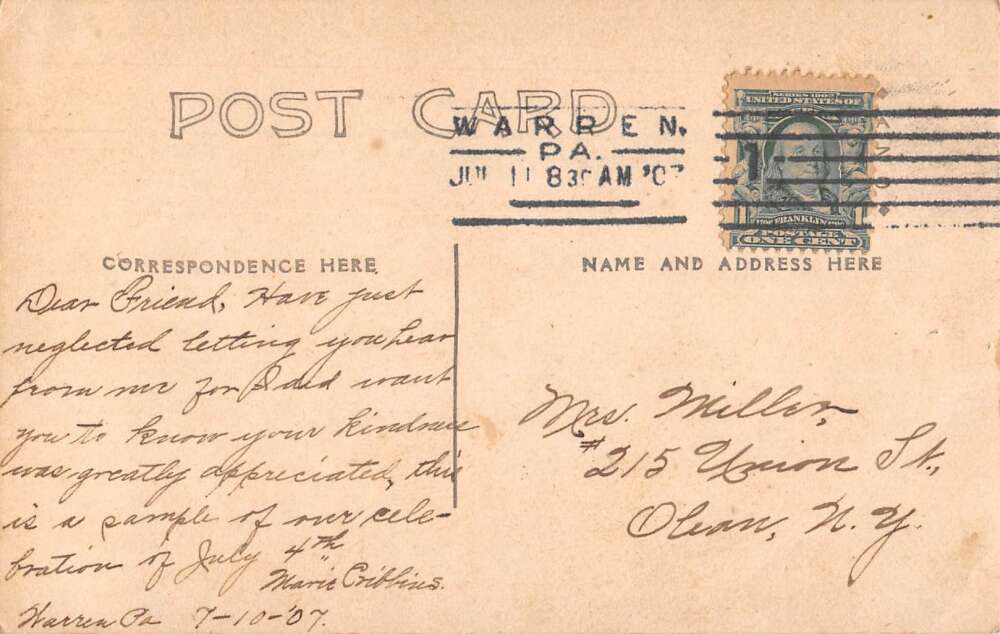 POST CARD
WARREN,
PA.
JUL 11 830AM '07
SERIES 1902
UNITED STATES OF
1
FRANKLIN
POSTAGE
ONE CENT
CORRESPONDENCE HERE
NAME AND ADDRESS HERE
Dear Friend, Have just
neglected letting you hear
from me for I did want
you to know your kindness
was greatly appreciated, this
is a sample of our cele-
bration of July 4th
Marie Cribbins.
Warren Pa 7-10-'07.
Mrs. Miller,
#215 Union St.,
Olean, N.Y.